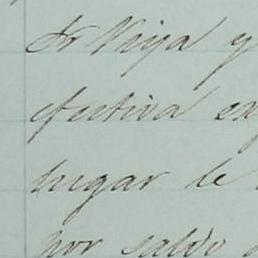 Sr Vija y
efectiva ex
lugar le
por saldo